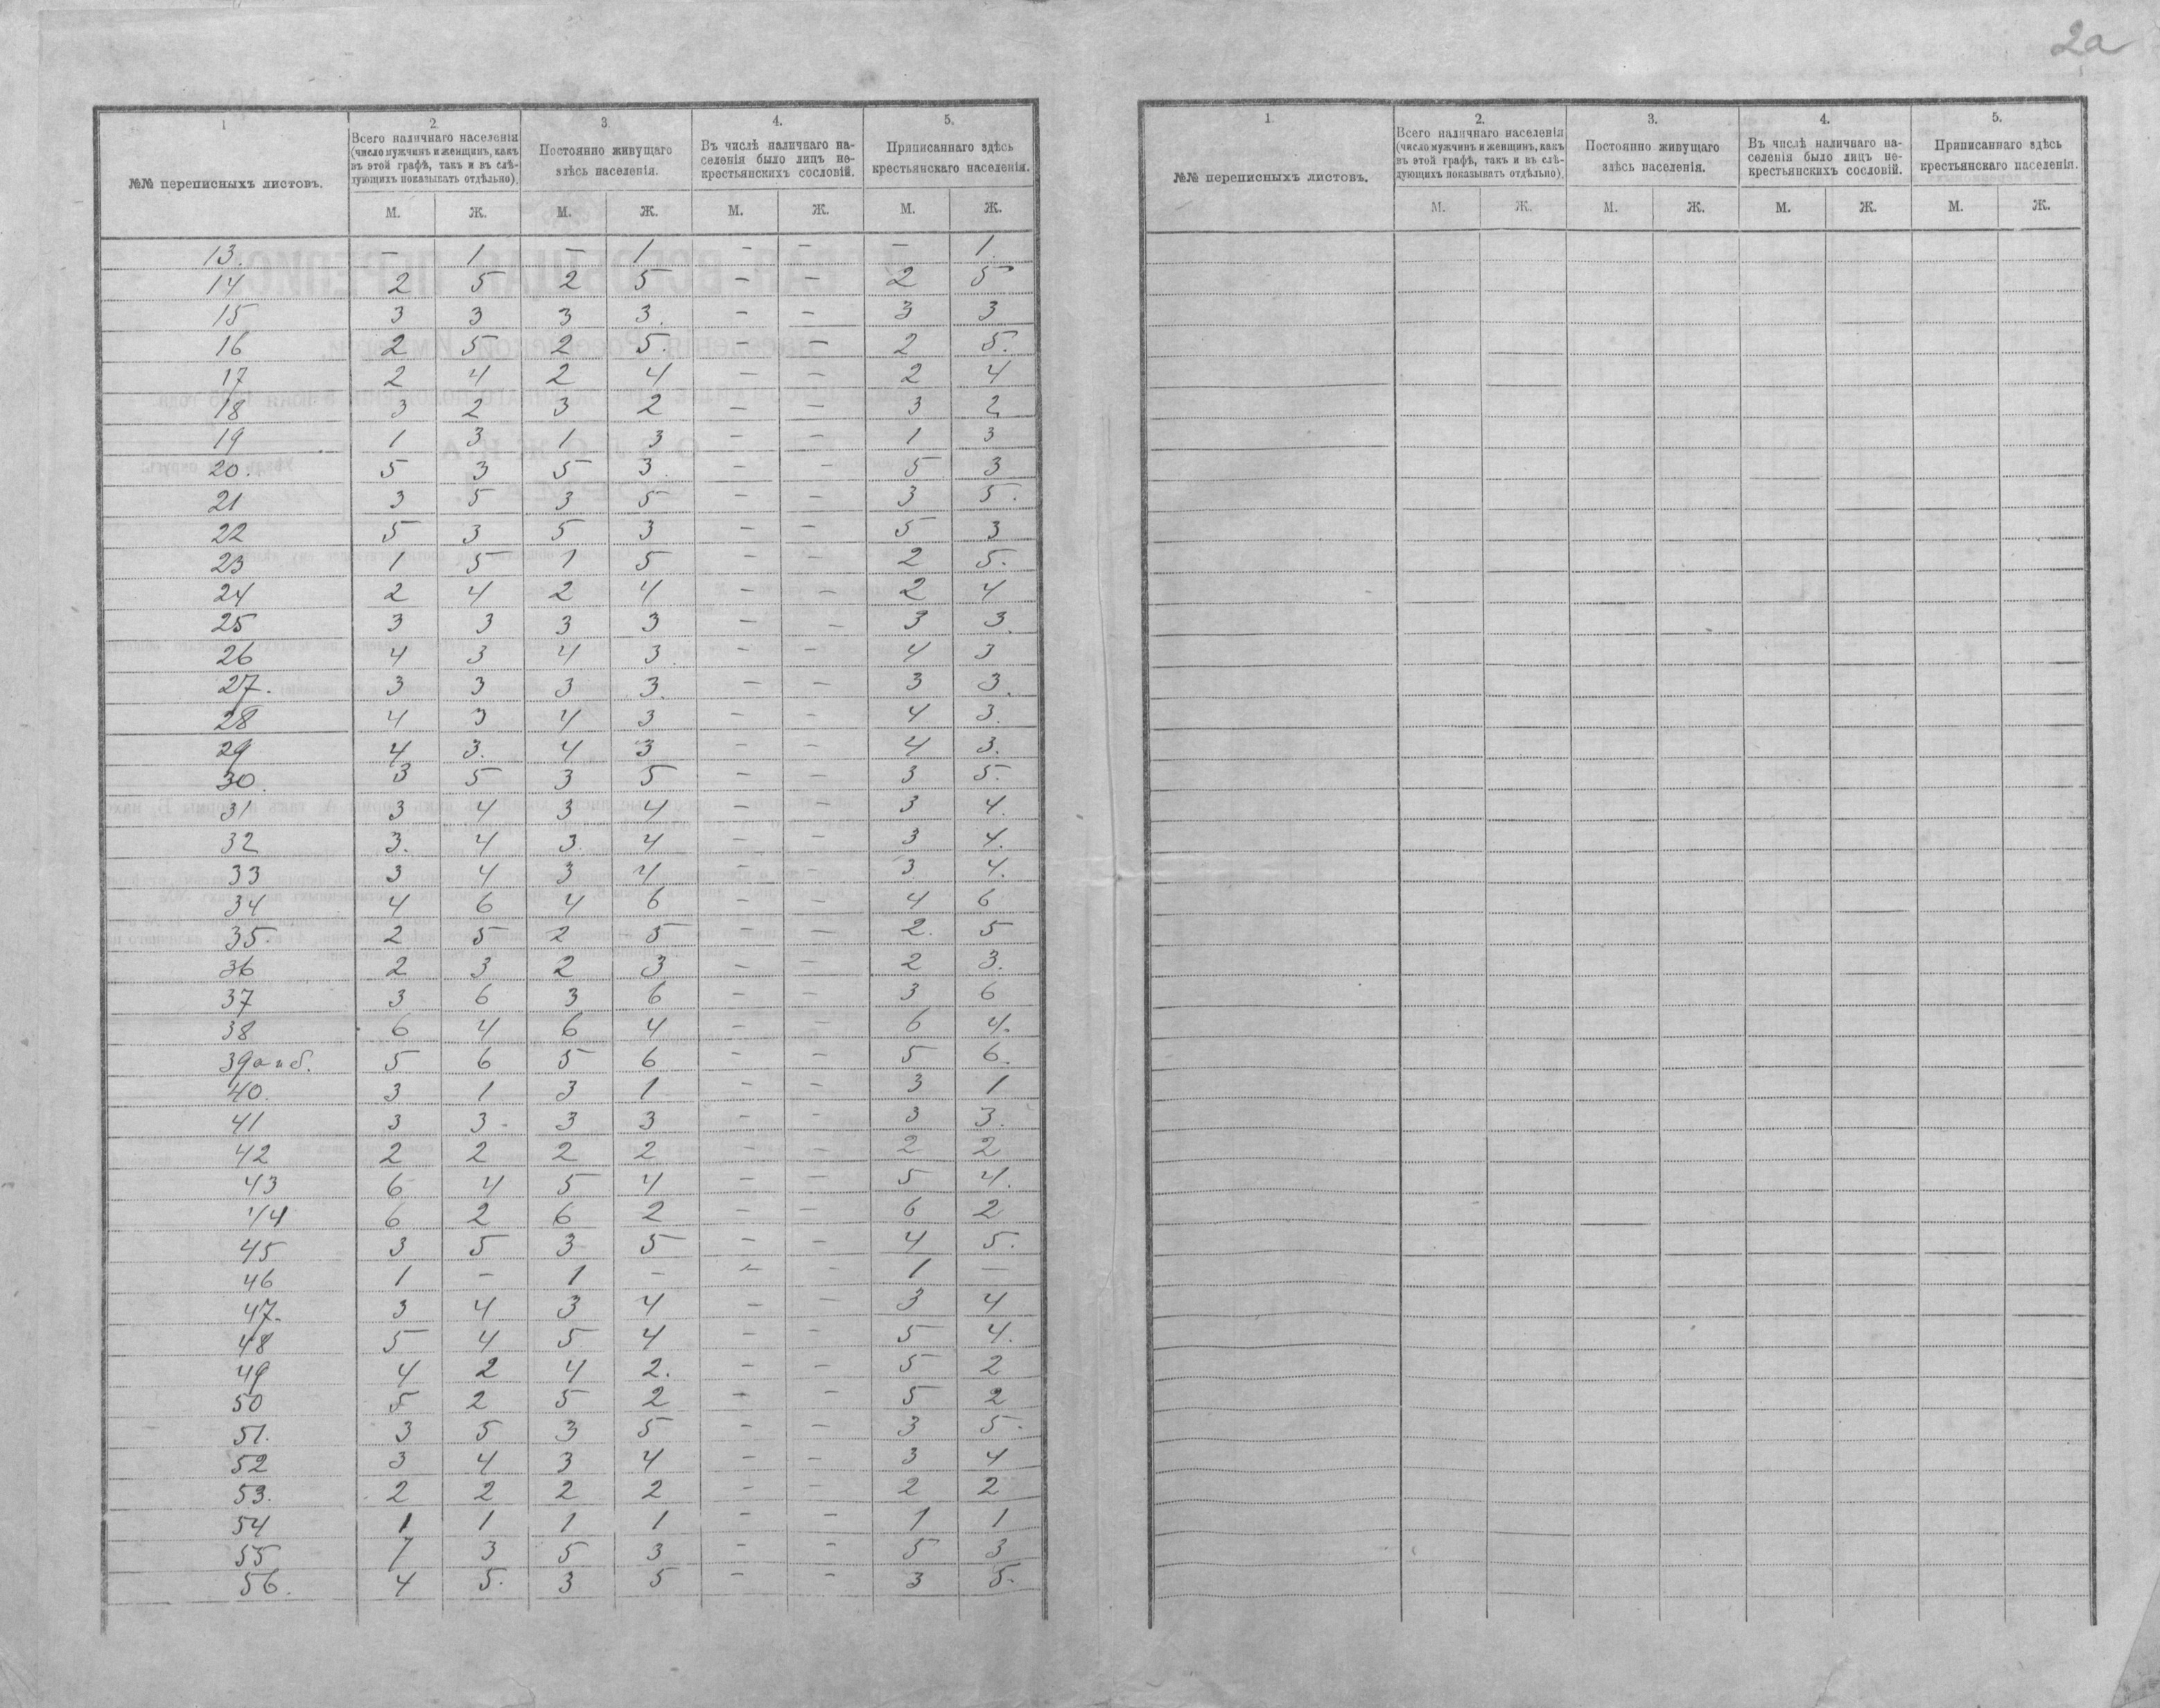 2а
1 2. 3 4. 5.
№№ переписныхъ листовъ.
Всего наличнаго населенія
(число мужчинъ и женщинъ, какъ
въ этой графѣ, такъ и въ слѣ-
дующихъ показывать отдѣльно).
Постоянно живущаго
здѣсь населенія.
Въ числѣ наличнаго на-
селенія было лицъ не-
крестьянскихъ сословій.
Приписаннаго здѣсь
крестьянскаго населенія.
М. Ж. М. Ж. М. Ж. М. Ж.
13. – 1 – 1 – – – 1.
14 2 5 2 5 – – 2 5
15 3 3 3 3. – – 3 3
16 2 5 2 5. – – 2 5.
17 2 4 2 4 – – 2 4
18 3 2 3 2 – – 3 2
19 1 3 1 3 – – 1 3
20. 5 3 5 3. – – 5 3
21 3 5 3 5 – – 3 5.
22 5 3 5 3 – – 5 3
23 1 5 1 5 – – 2 5.
24 2 4 2 4 – – 2 4
25 3 3 3 3 – – 3 3.
26 4 3 4 3. – – 4 3
27. 3 3 3 3. – – 3 3.
28 4 3 4 3 – – 4 3.
29 4 3. 4 3 – – 4 3.
30. 3 5 3 5 – – 3 5.
31 3 4 3 4 – – 3 4.
32 3. 4 3. 4 – – 3 4.
33 3 4 3 4 – – 3 4.
34 4 6 4 6 – – 4 6
35. 2 5 2 5 – – 2. 5
36 2 3 2 3 – – 2 3.
37 3 6 3 6 – – 3 6
38 6 4 6 4 – – 6 4.
39а и б. 5 6 5 6 – – 5 6.
40. 3 1 3 1 – – 3 1
41 3 3. 3 3 – – 3 3.
42 2 2 2 2 – – 2 2
43 6 4 5 4 – – 5 4.
44 6 2 6 2 – – 6 2
45 3 5 3 5 – – 4 5.
46 1 – 1 – – – 1 –
47. 3 4 3 4 – – 3 4
48 5 4 5 4 – – 5 4.
49 4 2 4 2. – – 5 2
50 5 2 5 2 – – 5 2
51. 3 5 3 5 – – 3 5.
52 3 4 3 4 – – 3 4
53. 2 2 2 2 – – 2 2
54 1 1 1 1 – – 1 1
55 7 3 5 3 – – 5 3
56. 4 5. 3 5 – – 3 5.
1. 2. 3. 4. 5.
№№ переписныхъ листовъ.
Всего наличнаго населенія
(число мужчинъ и женщинъ, какъ
въ этой графѣ, такъ и въ слѣ-
дующихъ показывать отдѣльно).
Постоянно живущаго
здѣсь населенія.
Въ числѣ наличнаго на-
селенія было лицъ не-
крестьянскихъ сословій.
Приписаннаго здѣсь
крестьянскаго населенія.
М. Ж. М. Ж. М. Ж. М. Ж.